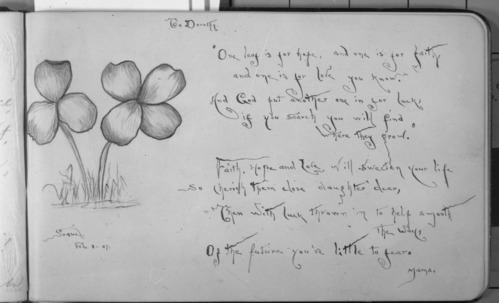 To Dorothy
"One leaf is for hope, and one is for faith,
and one is for love you know,"
And God put another one in for luck,
if you search you will find
where they grow."
Faith, Hope and Love will sweeten your life
So cherish them close daughter dear,
Then with luck thrown in to help smooth
the way,
Of the future you've little to fear.
Mama.
Feb. 2-07.